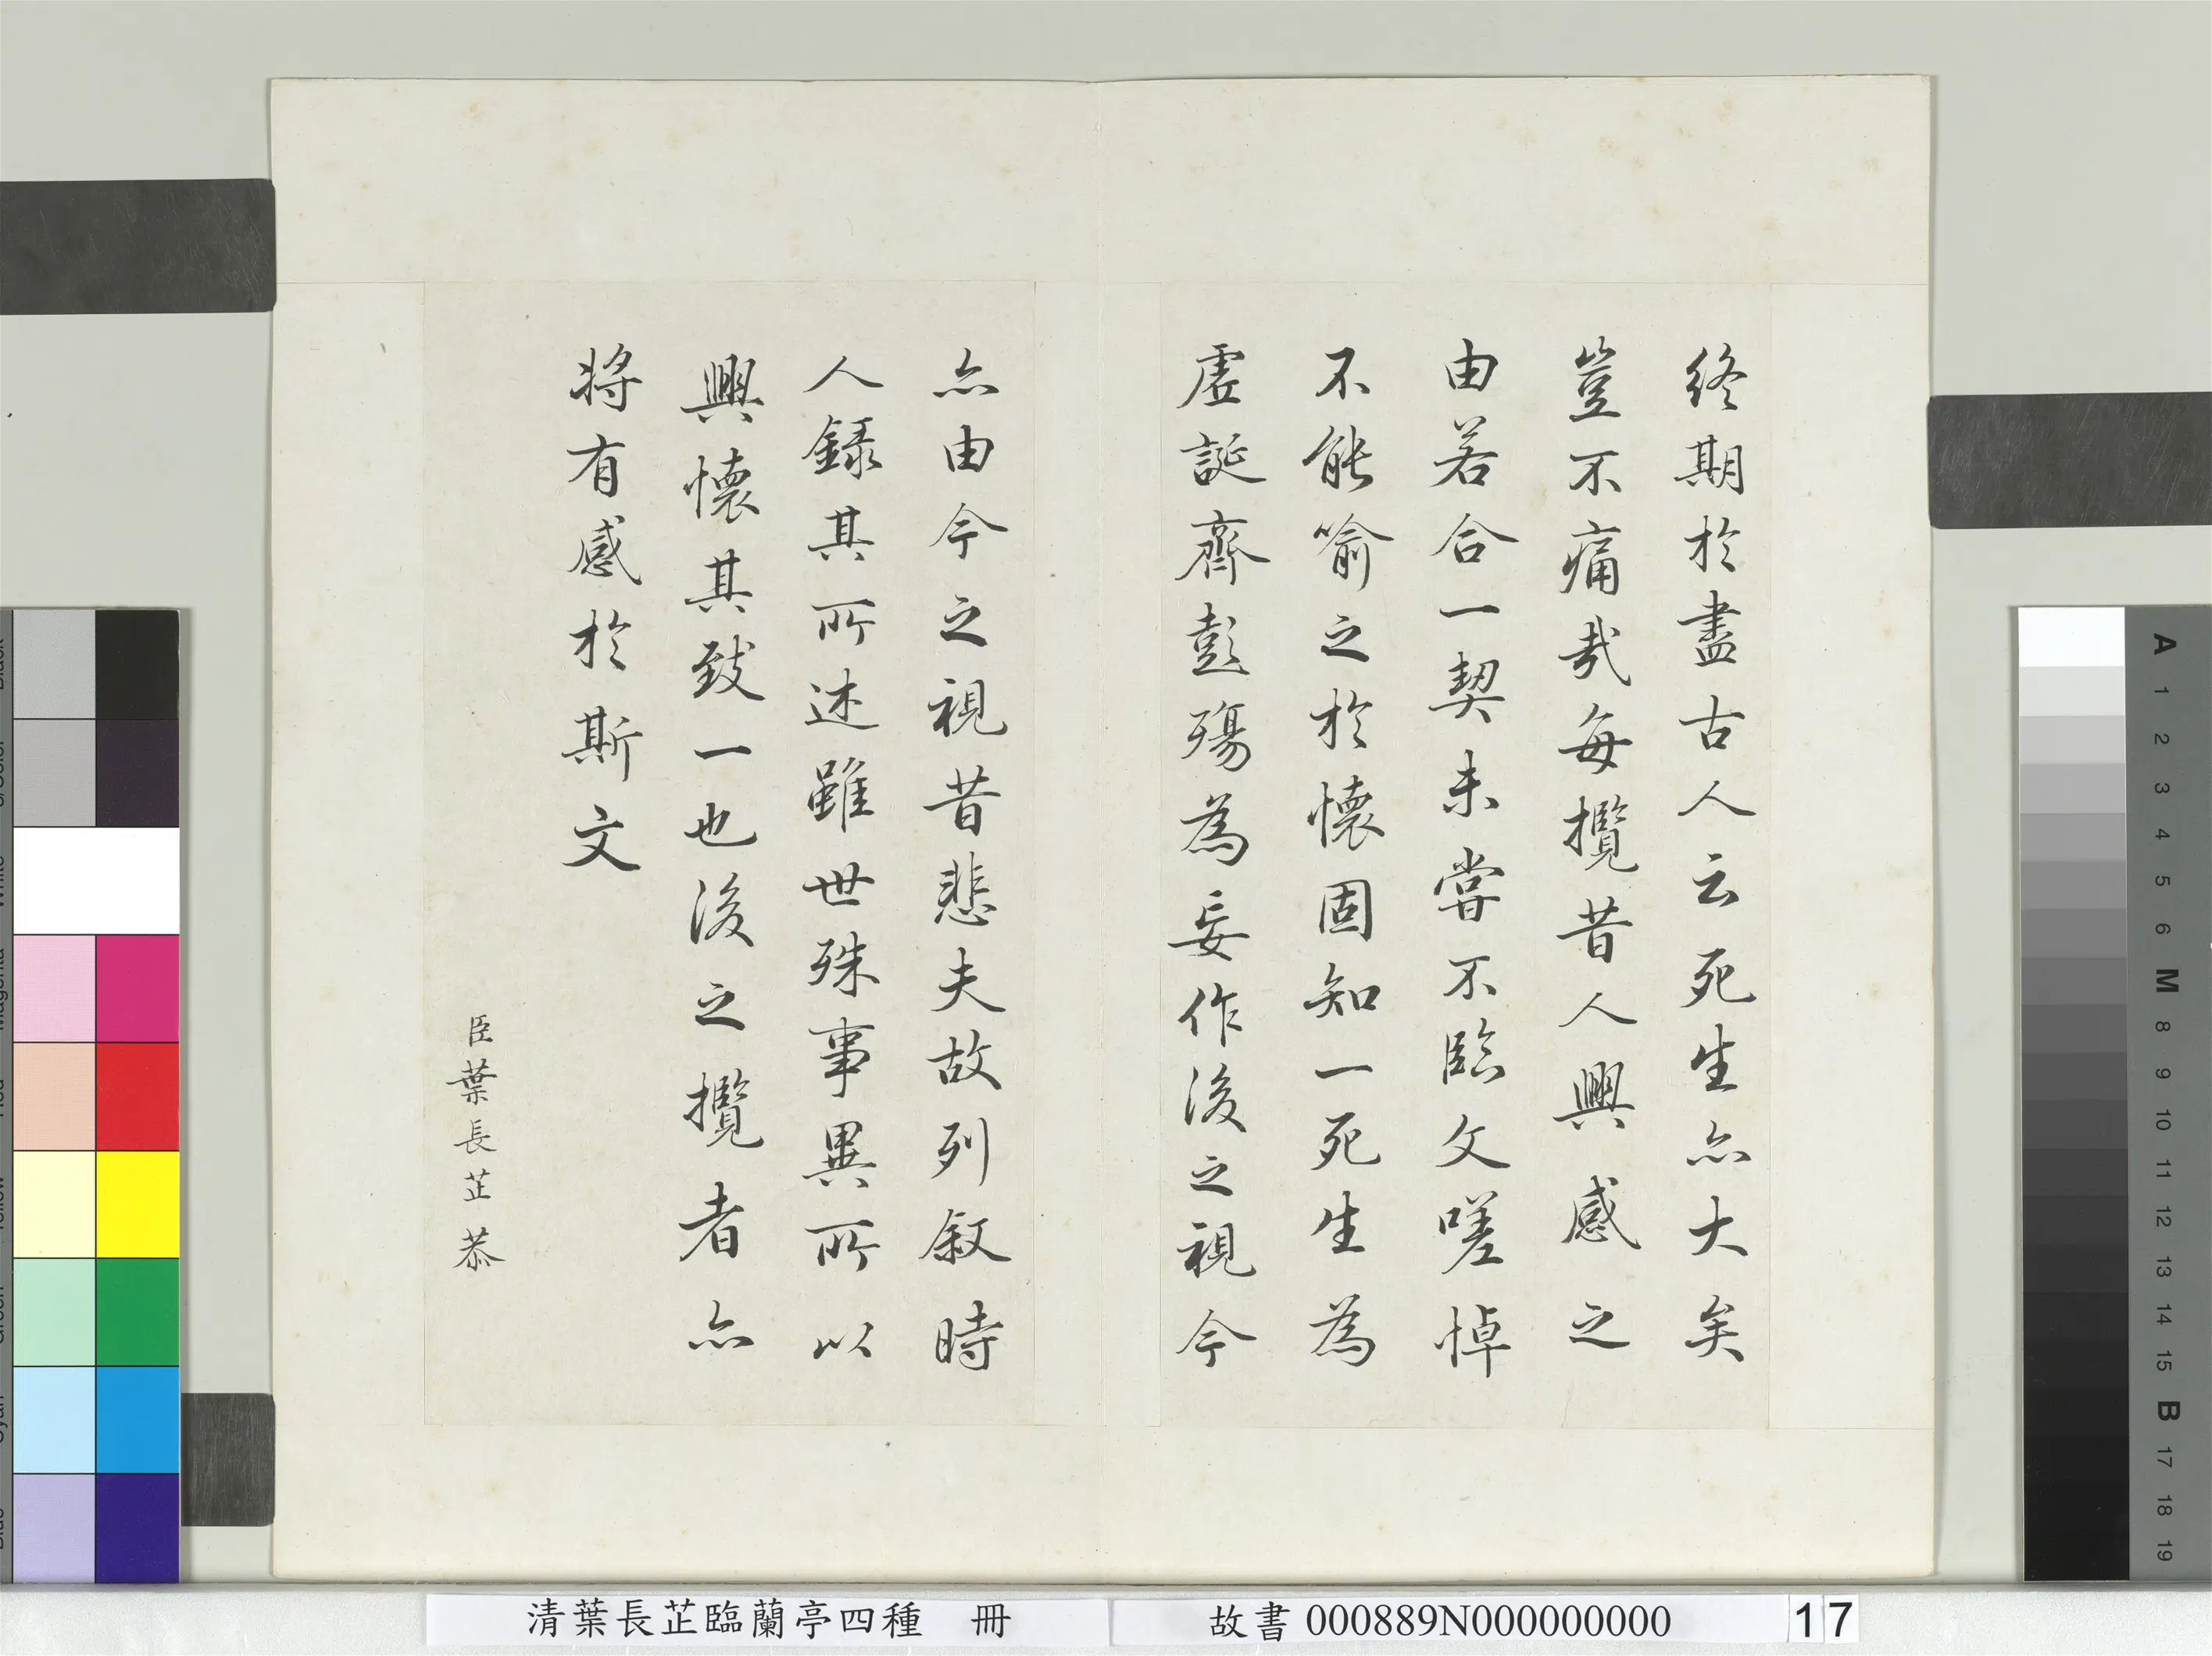 終期於盡古人云死生亦大矣
豈不痛哉每攬昔人興感之
由若合一契未甞不臨文嗟悼
不能喻之於懷固知一死生為
虛誕齊彭殤為妄作後之視今
亦由今之視昔悲夫故列敘時
人錄其所述雖世殊事異所以
興懷其致一也後之攬者亦
將有感於斯文
臣葉長芷恭
清葉長芷臨蘭亭四種 冊
故書 000889N000000000
17
A
1
2
3
4
5
6
M
8
9
10
11
12
13
14
15
B
17
18
19